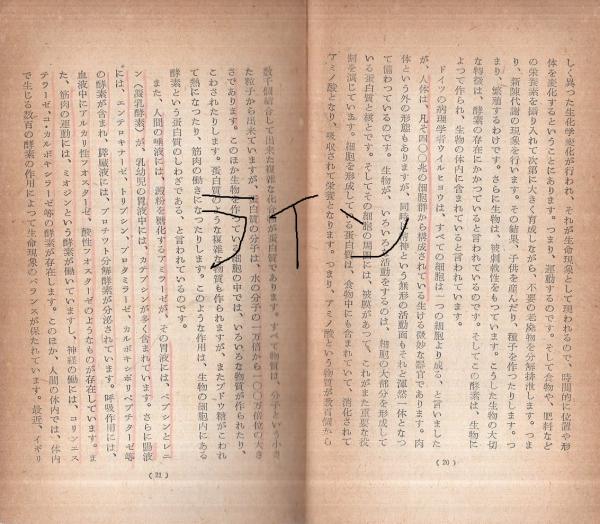 しく異った生化学変化が行われ、それが生命現象として現われるので、時間的に位置や形
体を変化するということにあります。つまり、運動するのです。そして食物や、肥料など
の栄養素を摂り入れて次第に大きく育成しながら、不要の老廃物を分解排泄します。つま
り、新陳代謝の現象を行います。その結果、子供を産んだり、種子を作ったりします。つ
まり、繁殖するわけです。さらに生物は、被刺戟性をもつています。こうした生物の大切
な特徴は、酵素の存在にかかつていると言われているのです。そしてこの酵素は、生物に
よつて作られ、生物の体に含まれていると言われています。
ドイツの病理学者ウイルヒョウは、すべての細胞は一つの細胞より成る、と言いました
が、人体は、凡そ四〇〇兆の細胞群から構成されている生ける微妙な器官であります。肉
体という外の形態もありますが、同時に精神という無形の活動面もそれと渾然一体となつ
て備わつているのです。生物が、いろいろな活動をするのは、細胞の大部分を形成して
いる蛋白質と核とです。そしてその細胞の周囲には、被膜があつて、これがまた重要な役
割を演じています。細胞を形成している蛋白質は、食物中にも含まれていて、消化されて
アミノ酸となり、吸収されて栄養となります。つまり、アミノ酸という物質が数百個から
(20)
数千個結合して出来た複雑な化合物が蛋白質であります。すべて物質は、分子という小さ
た粒子から出来ていますが、蛋白質の分子は、水の分子の一万倍から一〇〇万倍位の大き
さであります。このほか生物を作つている細胞の中では、いろいろな物質が作られたり、
こわされたりします。蛋白質のような複雑な物質も作られますが、またブドウ糖がこわれ
て熱になつたり、筋肉の働きになつたりします。このような作用は、生物の細胞内にある
酵素という蛋白質のしわざである、と言われているのです。
また、人間の唾液には、澱粉を糖化するアミラーゼが、その胃液には、ペプシンとレニ
ン(凝乳酵素)が、乳幼児の胃液中には、カテプシンが多く含まれています。さらに腸液
には、エンテロキナーゼ、トリプシン、プロタミラーゼ、カルボキシポリペプチターゼ等
の酵素が含まれ、膵臓液には、プロチット分解酵素が分泌されています。呼吸作用には、
血液中にアルカリ性フオスターゼ、酸性フオスターゼのようなものが存在しています。ま
た、筋肉の運動には、ミオシンという酵素が働いていますし、神経の働には、コリンエス
テラーゼやコ・カルボキシラーゼ等の酵素が存在します。このほか、人間の体内では、体内
で生じる数百の酵素の作用によつて生命現象のバランスが保たれています。最近、イギリ
(21)
ライン